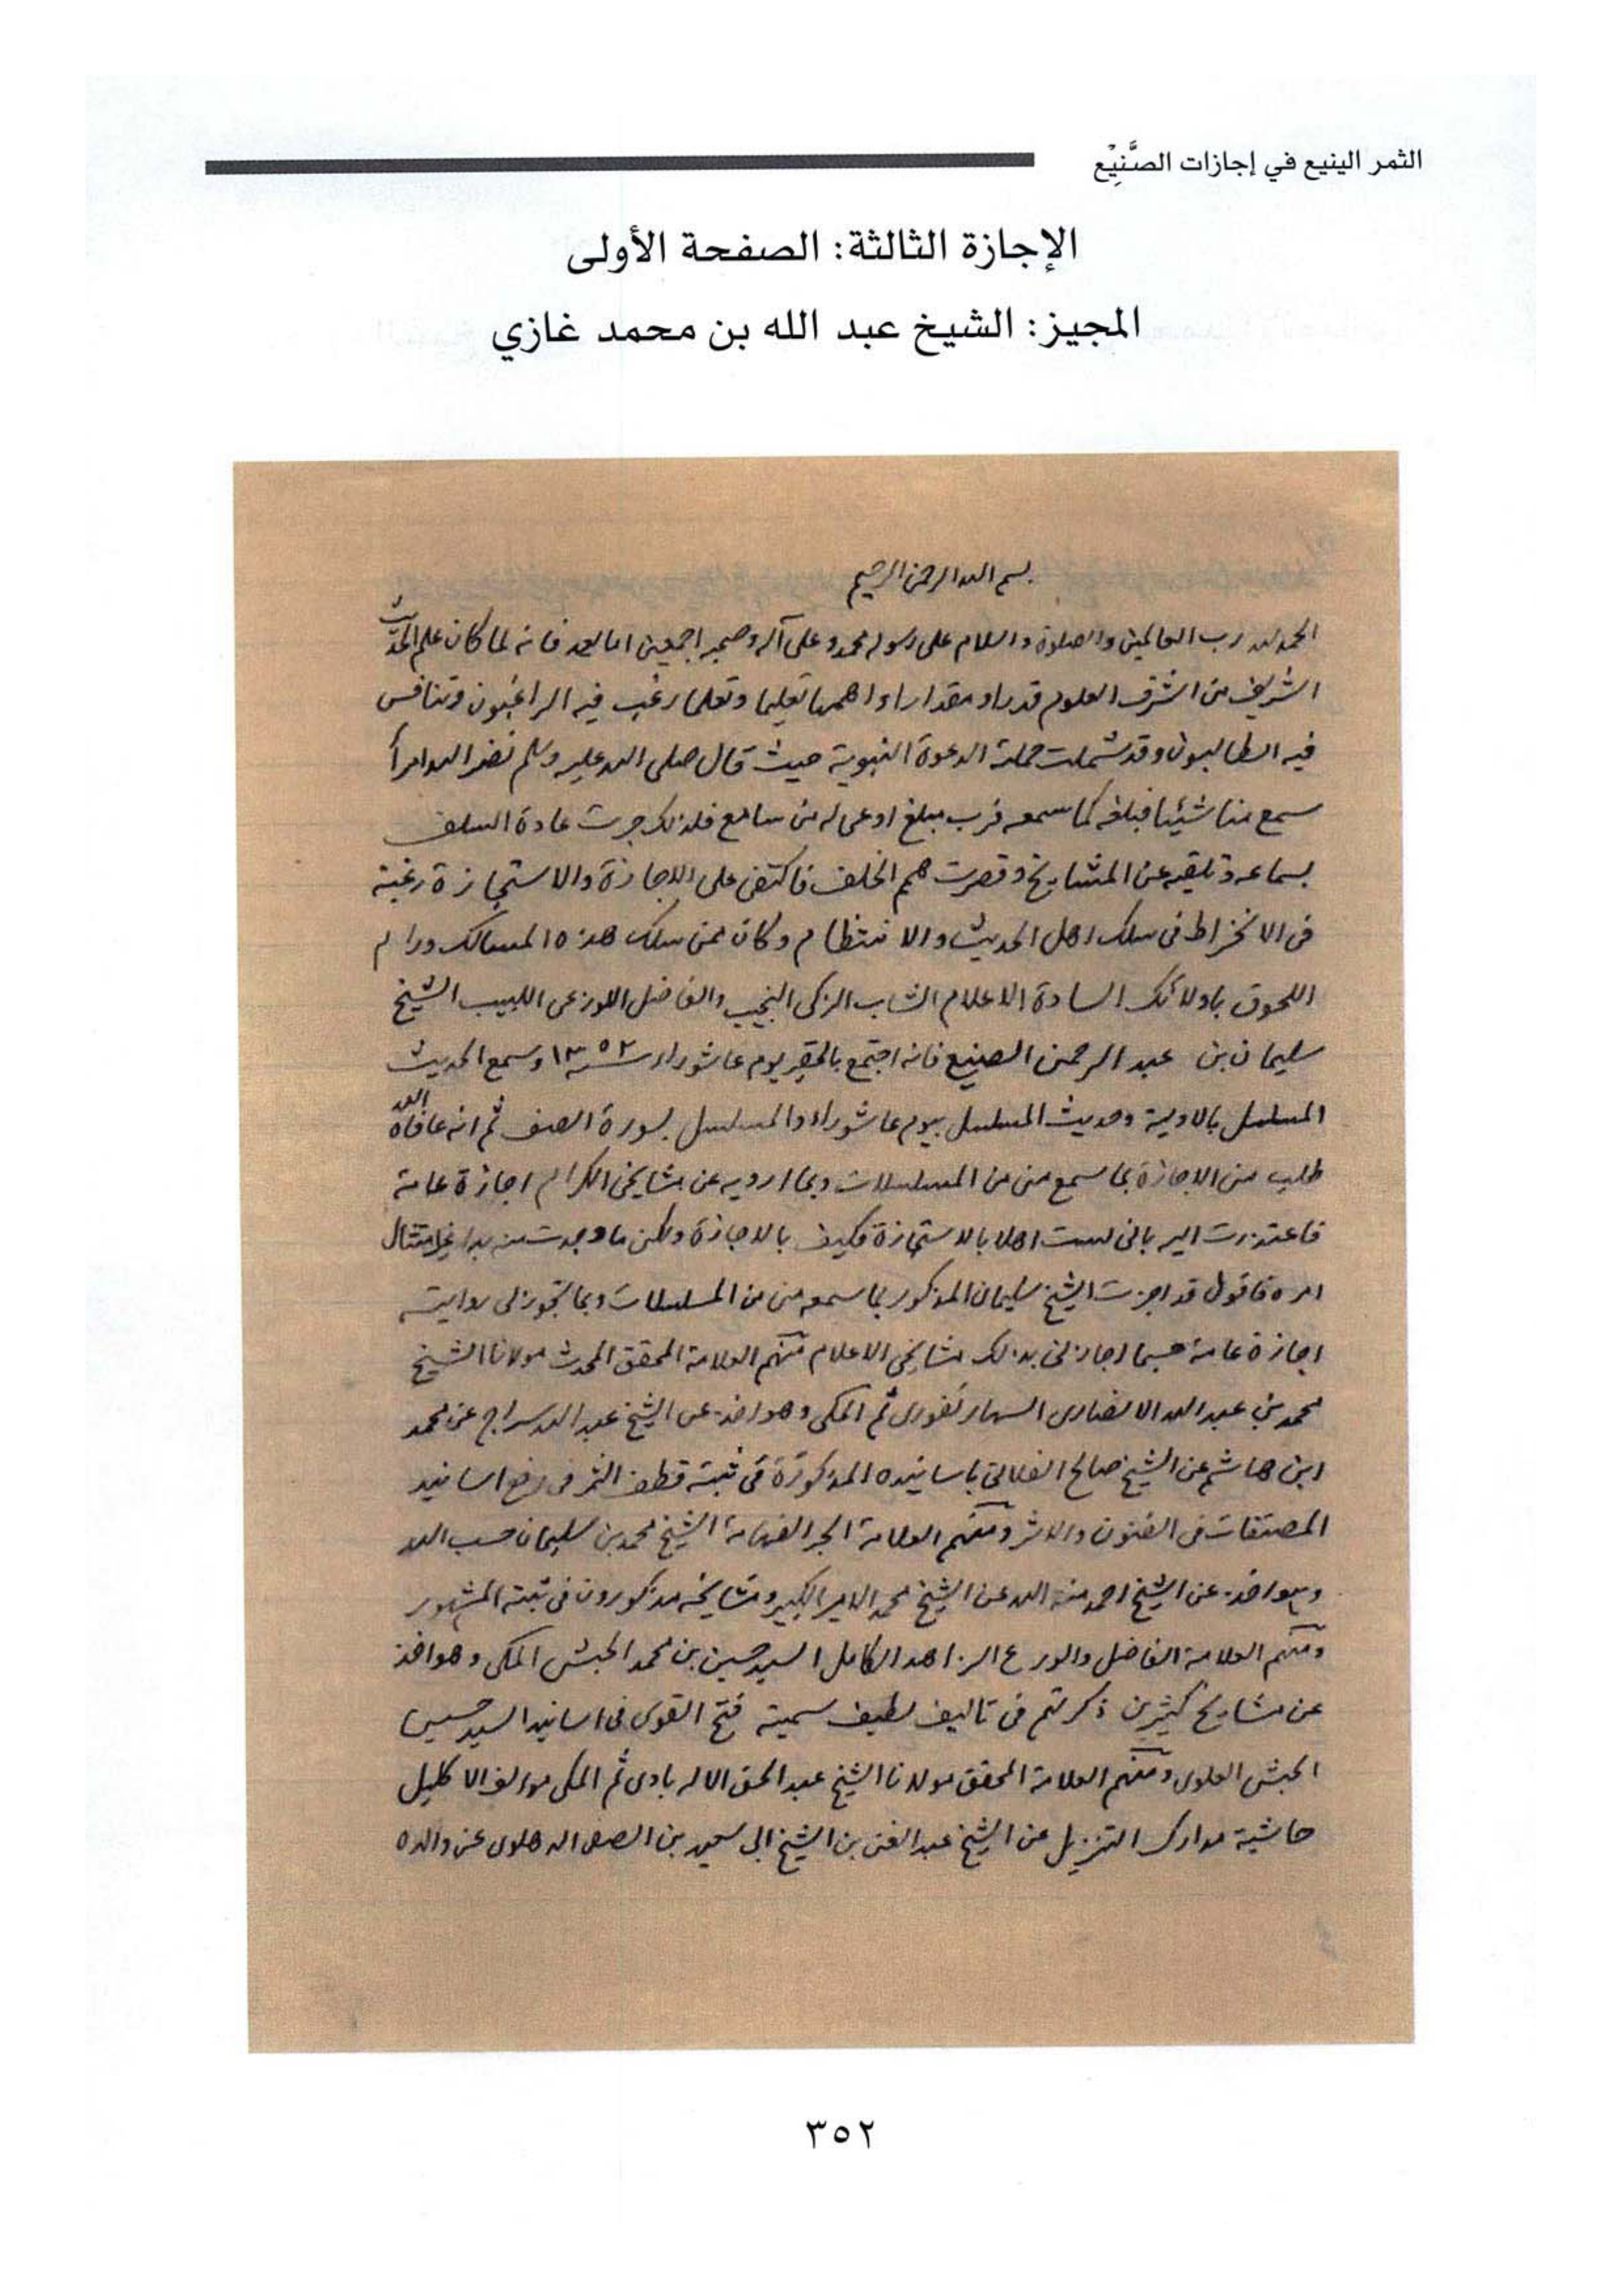 الثمر الينيع في إجازات الصَّنِيْع
الإجازة الثالثة: الصفحة الأولى
المجيز: الشيخ عبد الله بن محمد غازي
بسم الله الرحمن الرحيم
الحمد لله رب العالمين والصلوة والسلام على رسوله محمد وعلى آله وصحبه اجمعين اما بعد فانه لما كان علم الحديث
الشريف من اشرف العلوم قدرا ومقدارا واهمها تعليما وتعلما رغب فيه الراغبون وتنافس
فيه الطالبون وقد شملت حملته الدعوة النبوية حيث قال صلى الله عليه وسلم نضر الله امرأ
سمع منا شيئا فبلغه كما سمعه فرب مبلغ اوعى له من سامع فلذلك جرت عادة السلف
بسماعه وتلقيه عن المشايخ وقصرت همم الخلف فاكتفى على الاجازة والاستجازة رغبة
في الانخراط في سلك اهل الحديث والانتظام وكان ممن سلك هذه المسالك ورام
اللحوق باولائك السادة الاعلام الشاب الزكى النجيب والفاضل اللوزعى اللبيب الشيخ
سليمان بن عبد الرحمن الصنيع فانه اجتمع بالحقير يوم عاشوراء سنة ١٣٥٢ وسمع الحديث
المسلسل بالاولية وحديث المسلسل بيوم عاشوراء والمسلسل بسورة الصف ثم انه عافاه الله
طلب منى الاجازة بما سمع منى من المسلسلات وبما ارويه عن مشايخى الكرام اجازة عامة
فاعتذرت اليه بانى لست اهلا بالاستجازة فكيف بالاجازة ولكن ما وجدت منه بدا غير امتثال
امره فاقول قد اجزت الشيخ سليمان المذكور بما سمعه منى من المسلسلات وبما تجوز لى روايته
اجازة عامة حسبما اجازنى بذلك مشايخى الاعلام منهم العلامة المحقق المحدث مولانا الشيخ
محمد بن عبد الله الانصارى السهارنفورى ثم المكى وهو اخذ عن الشيخ عبد الله سراج عن محمد
ابن هاشم عن الشيخ صالح الفلانى باسانيده المذكورة فى ثبته قطف الثمر فى رفع اسانيد
المصنفات فى الفنون والاثر ومنهم العلامة الحبر الفهامة الشيخ محمد بن سليمان حسب الله
وهو اخذ عن الشيخ احمد منة الله عن الشيخ محمد الامير الكبير ومشايخه مذكورون فى ثبته المشهور
ومنهم العلامة الفاضل والورع الزاهد الكامل السيد حسين بن محمد الحبشى المكى وهو اخذ
عن مشايخ كثيرين ذكرتهم فى تاليف لطيف سميته فتح القوى فى اسانيد السيد حسين
الحبشى العلوى ومنهم العلامة المحقق مولانا الشيخ عبد الحق الاله بادى ثم المكى مؤلف الاكليل
حاشية مدارك التنزيل عن الشيخ عبد الغنى بن الشيخ ابى سعيد بن الصفى الدهلوى عن والده
٣٥٢